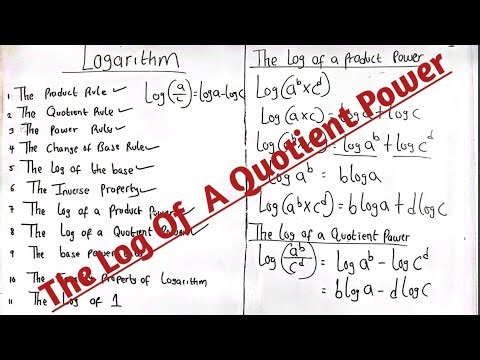 Logarithm
1 The Product Rule ✓ Log(a/c)=loga-logc
2 The Quotient Rule ✓
3 The Power Rule ✓
4 The Change of Base Rule ✓
5 The Log of the base ✓
6 The Inverse Property ✓
7 The log of a Product Power ✓
8 The Log of a Quotient Power ✓
9 The base Power
10 The Property of Logarithm
11 The Log of 1
The Log of a Product Power
Log(a^b×c^d)
Log(a×c)= Log a + Log c
Log(a^b×c^d)= Log a^b + Log c^d
Log a^b = b log a
Log(a^b×c^d)= b log a + d log c
The Log of a Quotient Power
Log(a^b/c^d) = Log a^b - Log c^d
= b log a - d log c
The Log Of A Quotient Power